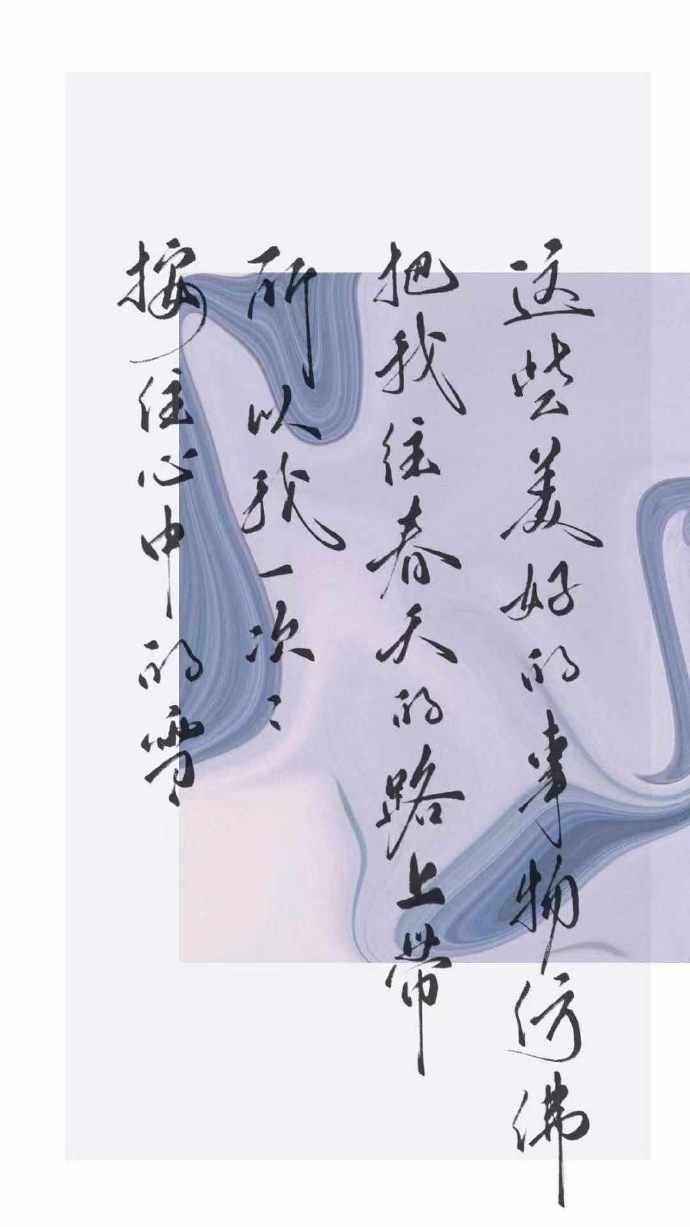 这些美好的事物仿佛
把我往春天的路上带
所以我一次次
按住心中的雪